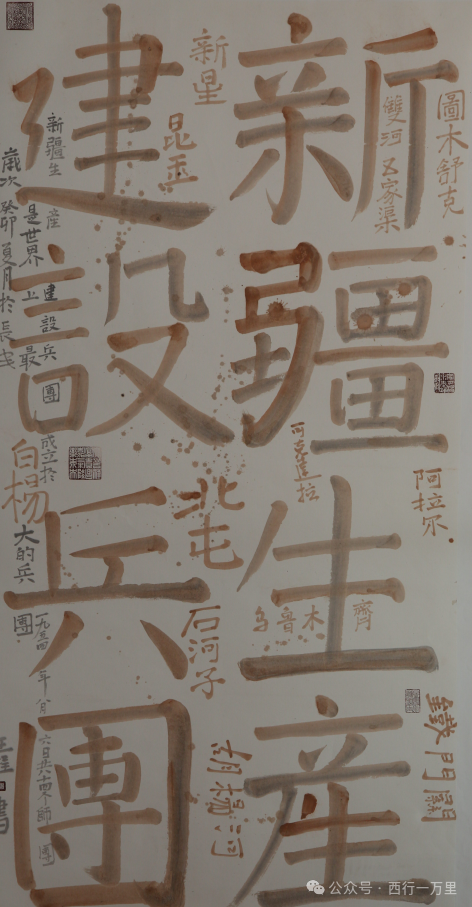 新疆生產
建設兵團
圖木舒克
雙河 五家渠
阿拉尔
鐵門關
可克達拉
乌鲁木齊
新星
昆玉
北屯
石河子
胡楊河
白楊
新疆生產建設兵團成立於一九五四年
是世界上最大的兵團
歲次癸卯夏月於長安
公众号·西行一万里